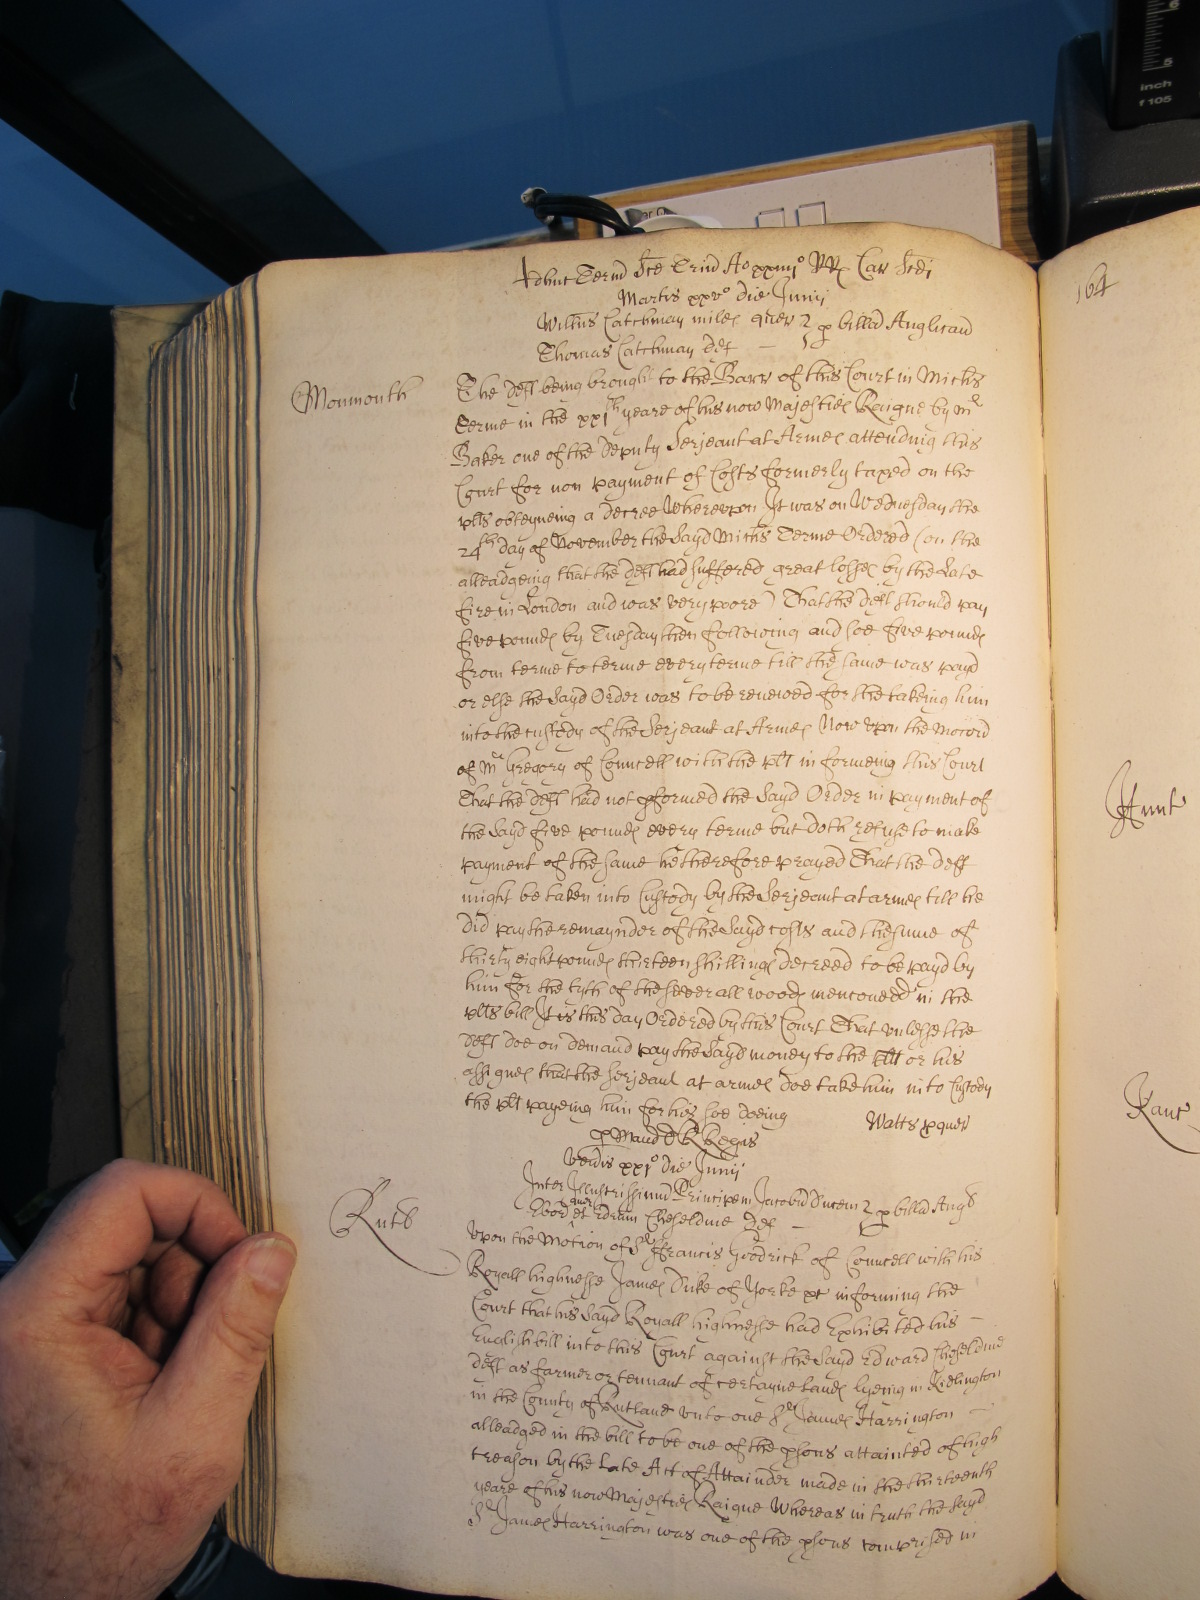 Adhuc Termo Sce Trin Ao xxiiijo RRx Car Scdi
Martis xxvo die Junij
Willus Catchmay miles quer 2 p billa Anglicana
Thomas Catchmay Deft
Monmouth
The Deft being brought to the Barr of this Court in Michs
Terme in the xxjth yeare of his now Majesties Reigne by mr
Baker one of the Deputy Serjeant at Armes attending this
Court for non payment of Costs formerly taxed on the
plts obteyneing a decree Wherevpon It was on Wednesday the
24th day of November the Sayd Michs Terme Ordered (on the
alleadgeing that the deft had suffered great losses by the Late
fire in London and was very poore) That the deft should pay
five pounds by Tuesday then following and soe five pounds
from terme to terme every terme till the same was payd
or else the Sayd Order was to be renewed for the takeing him
into the custody of the Serjeant at Armes Now vpon the mocion
of Mr Gregory of Councell with the plt in formeing this Court
That the deft had not pformed the Sayd Order in payment of
the Sayd five pounds every terme but doth refuse to make
payment of the same he therefore prayed That the deft
might be taken into Custody by the Serjeant at armes till he
did pay the remaynder of the Sayd costs and the sume of
thirty eight pounds thirteen shillings decreed to be payd by
him for the tyth of the severall woods menconed in the
plts bill It is this day Ordered by this Court That vnlesse the
deft doe on demand pay the Sayd money to the plt or his
assignes that the serjeant at armes doe take him into Custody
the plt payeing him for his soe doeing Watts p quer
p Mand Rr Regis
Veneris xxjo die Junij
Inter Illustrissimum Principem Jacobum Ducem 2 p billa Angl
Ebor quer et Edrum Cheseldine Def
Rutl
Vpon the Motion of Sr Francis Goodrick of Councell with his
Royall highnesse James Duke of Yorke &c informing the
Court that his Sayd Royall highnesse had Exhibited his
English bill into this Court against the Sayd Edward Cheseldine
deft as farmer or tennant of certayne Lands lyeing in Ridlington
in the County of Rutland vnto one Sr James Harrington
alleadged in the bill to be one of the psons attainted of high
treason by the Late Act of Attainder made in the thirteenth
yeare of his now Majesties Raigne Whereas in truth the Sayd
Sr James Harrington was one of the psons comprised in
164
Hunt
Kanc
inch
f 105
5